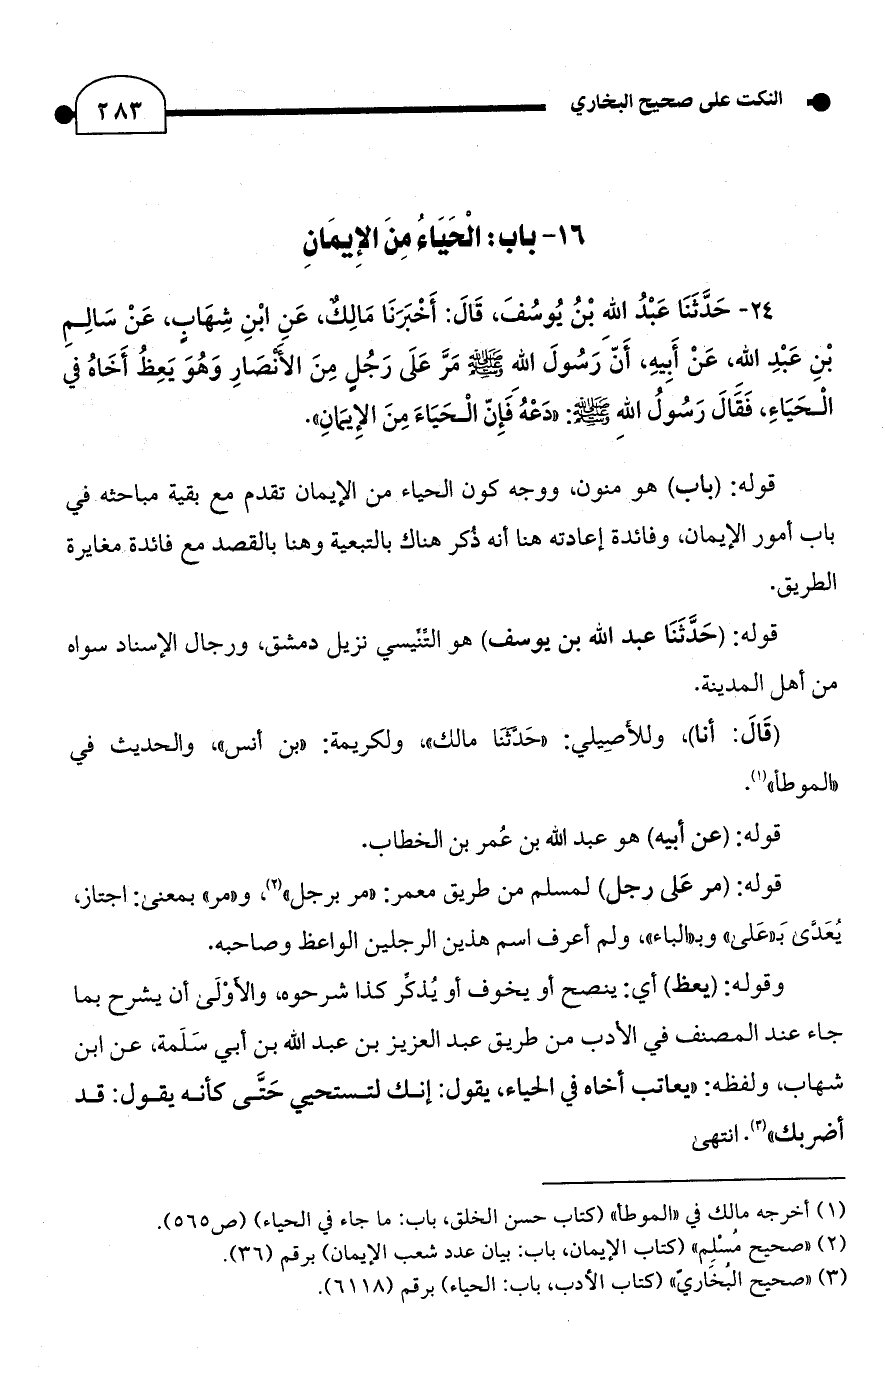 النكت على صحيح البخاري
٢٨٣
١٦- باب: الْحَيَاءُ مِنَ الإِيمَانِ
٢٤- حَدَّثَنَا عَبْدُ اللهِ بْنُ يُوسُفَ، قَالَ: أَخْبَرَنَا مَالِكٌ، عَنِ ابْنِ شِهَابٍ، عَنْ سَالِمِ
بْنِ عَبْدِ اللهِ، عَنْ أَبِيهِ، أَنَّ رَسُولَ اللهِ ﷺ مَرَّ عَلَى رَجُلٍ مِنَ الأَنْصَارِ وَهُوَ يَعِظُ أَخَاهُ فِي
الْحَيَاءِ، فَقَالَ رَسُولُ اللهِ ﷺ: «دَعْهُ فَإِنَّ الْحَيَاءَ مِنَ الإِيمَانِ».
قوله: (باب) هو منون، ووجه كون الحياء من الإيمان تقدم مع بقية مباحثه في
باب أمور الإيمان، وفائدة إعادته هنا أنه ذُكر هناك بالتبعية وهنا بالقصد مع فائدة مغايرة
الطريق.
قوله: (حَدَّثَنَا عبد الله بن يوسف) هو التِّنِّيسي نزيل دمشق، ورجال الإسناد سواه
من أهل المدينة.
(قَالَ: أنا)، وللأصِيلي: «حَدَّثَنَا مالك»، ولكريمة: «بن أنس»، والحديث في
«الموطأ»(١).
قوله: (عن أبيه) هو عبد الله بن عُمر بن الخطاب.
قوله: (مر عَلى رجل) لمسلم من طريق معمر: «مر برجل»(٢)، و«مر» بمعنى: اجتاز،
يُعَدَّى بَـ«عَلى» وبـ«الباء»، ولم أعرف اسم هذين الرجلين الواعظ وصاحبه.
وقوله: (يعظ) أي: ينصح أو يخوف أو يُذكِّر كذا شرحوه، والأوْلَى أن يشرح بما
جاء عند المصنف في الأدب من طريق عبد العزيز بن عبد الله بن أبي سَلَمة، عن ابن
شهاب، ولفظه: «يعاتب أخاه في الحياء، يقول: إنك لتستحيي حَتَّى كأنه يقول: قد
أضربك»(٣). انتهى
(١) أخرجه مالك في «الموطأ» (كتاب حسن الخلق، باب: ما جاء في الحياء) (ص٥٦٥).
(٢) «صحيح مُسْلِم» (كتاب الإيمان، باب: بيان عدد شعب الإيمان) برقم (٣٦).
(٣) «صحيح البُخَاريّ» (كتاب الأدب، باب: الحياء) برقم (٦١١٨).